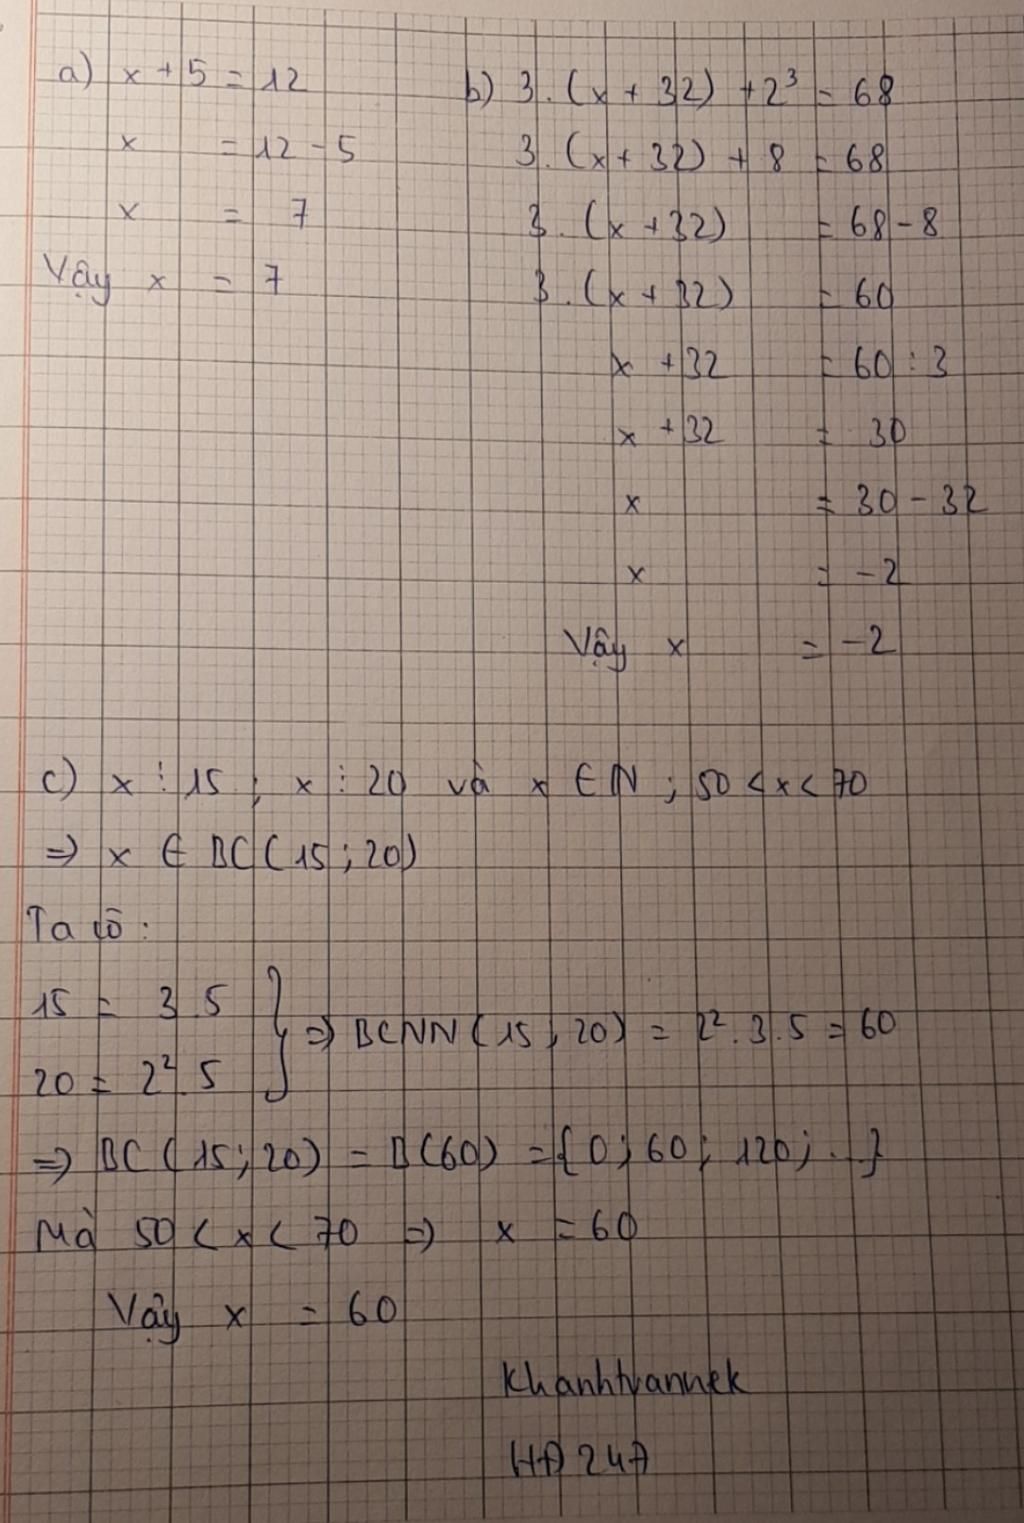 a) x + 5 = 12
x = 12 - 5
x = 7
Vậy x = 7
b) 3. (x + 32) + 2³ = 68
3. (x + 32) + 8 = 68
3. (x + 32) = 68 - 8
3. (x + 32) = 60
x + 32 = 60 : 3
x + 32 = 30
x = 30 - 32
x = -2
Vậy x = -2
c) x ⋮ 15 ; x ⋮ 20 và x ∈ N ; 50 < x < 70
=> x ∈ BC (15 ; 20)
Ta có :
15 = 3.5
20 = 2².5 } => BCNN (15 ; 20) = 2².3.5 = 60
=> BC (15 ; 20) = B(60) = {0 ; 60 ; 120 ; ..}
Mà 50 < x < 70 => x = 60
Vậy x = 60
Khanhtvannek
HĐ 247